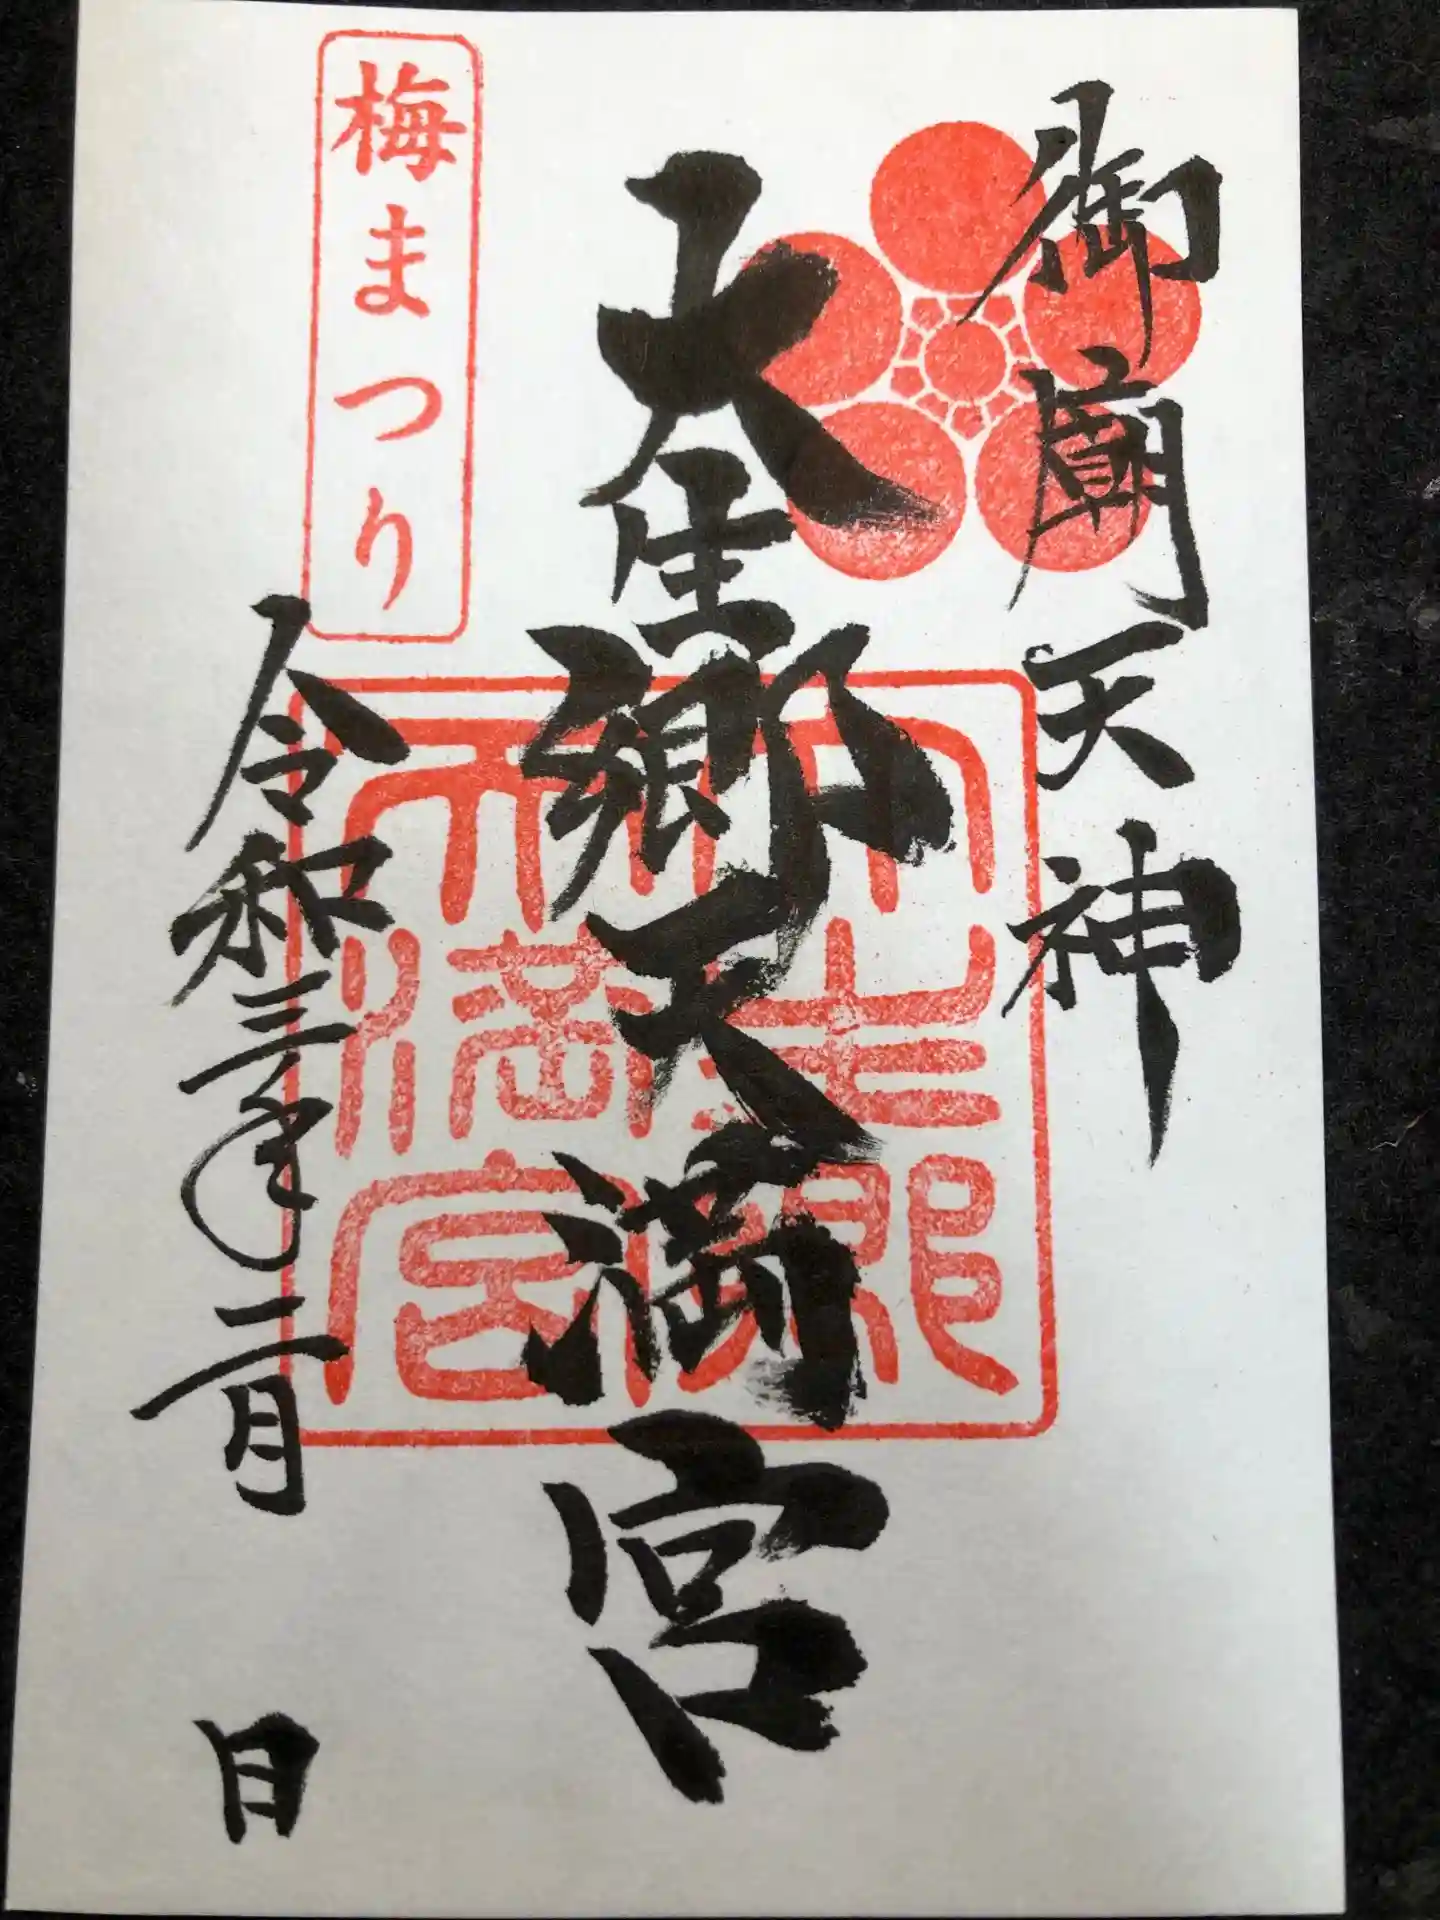 御廟天神
大生郷天満宮
大生郷天満宮
梅まつり
令和三年二月 日